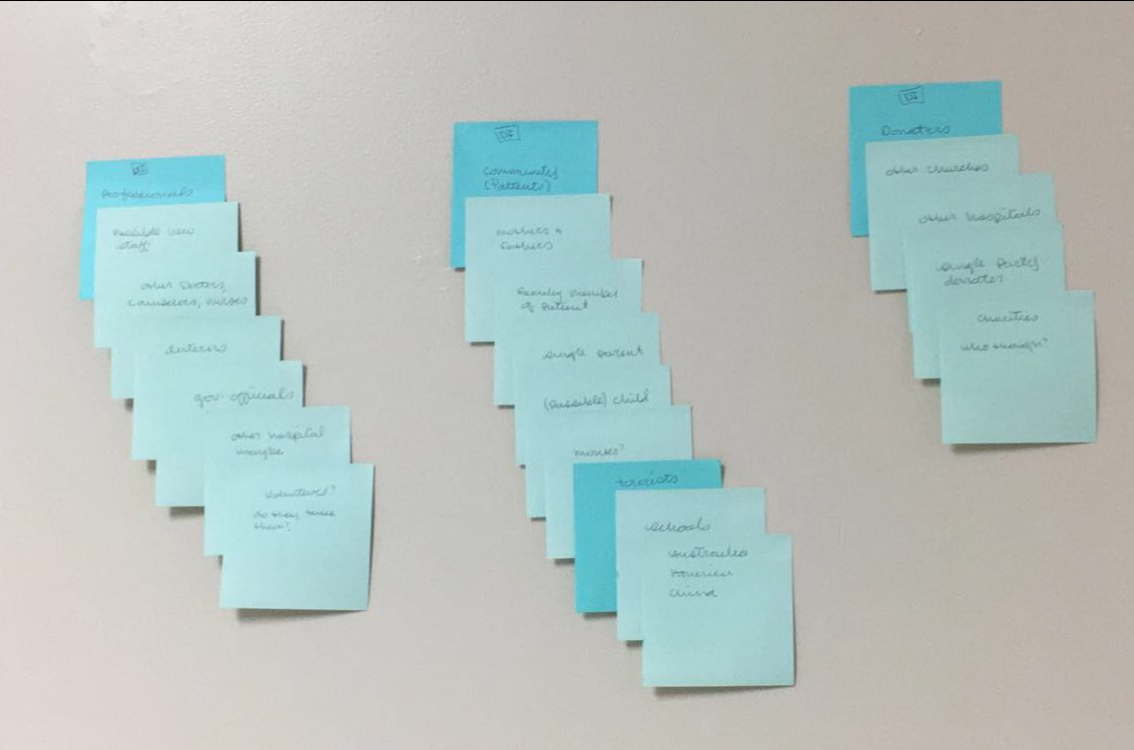 Professionals
Possible new
staff
other Doctors,
Counselors, nurses
gov. officials
other hospital
maybe
volunteers?
do they have
them?
Community
(Patients)
mothers +
fathers
family member
of patient
single parent
(possible) child
nurses?
tourists
schools
Australia
America
China
Donaters
other churches
other hospitals
single party
donates
charities
who through?